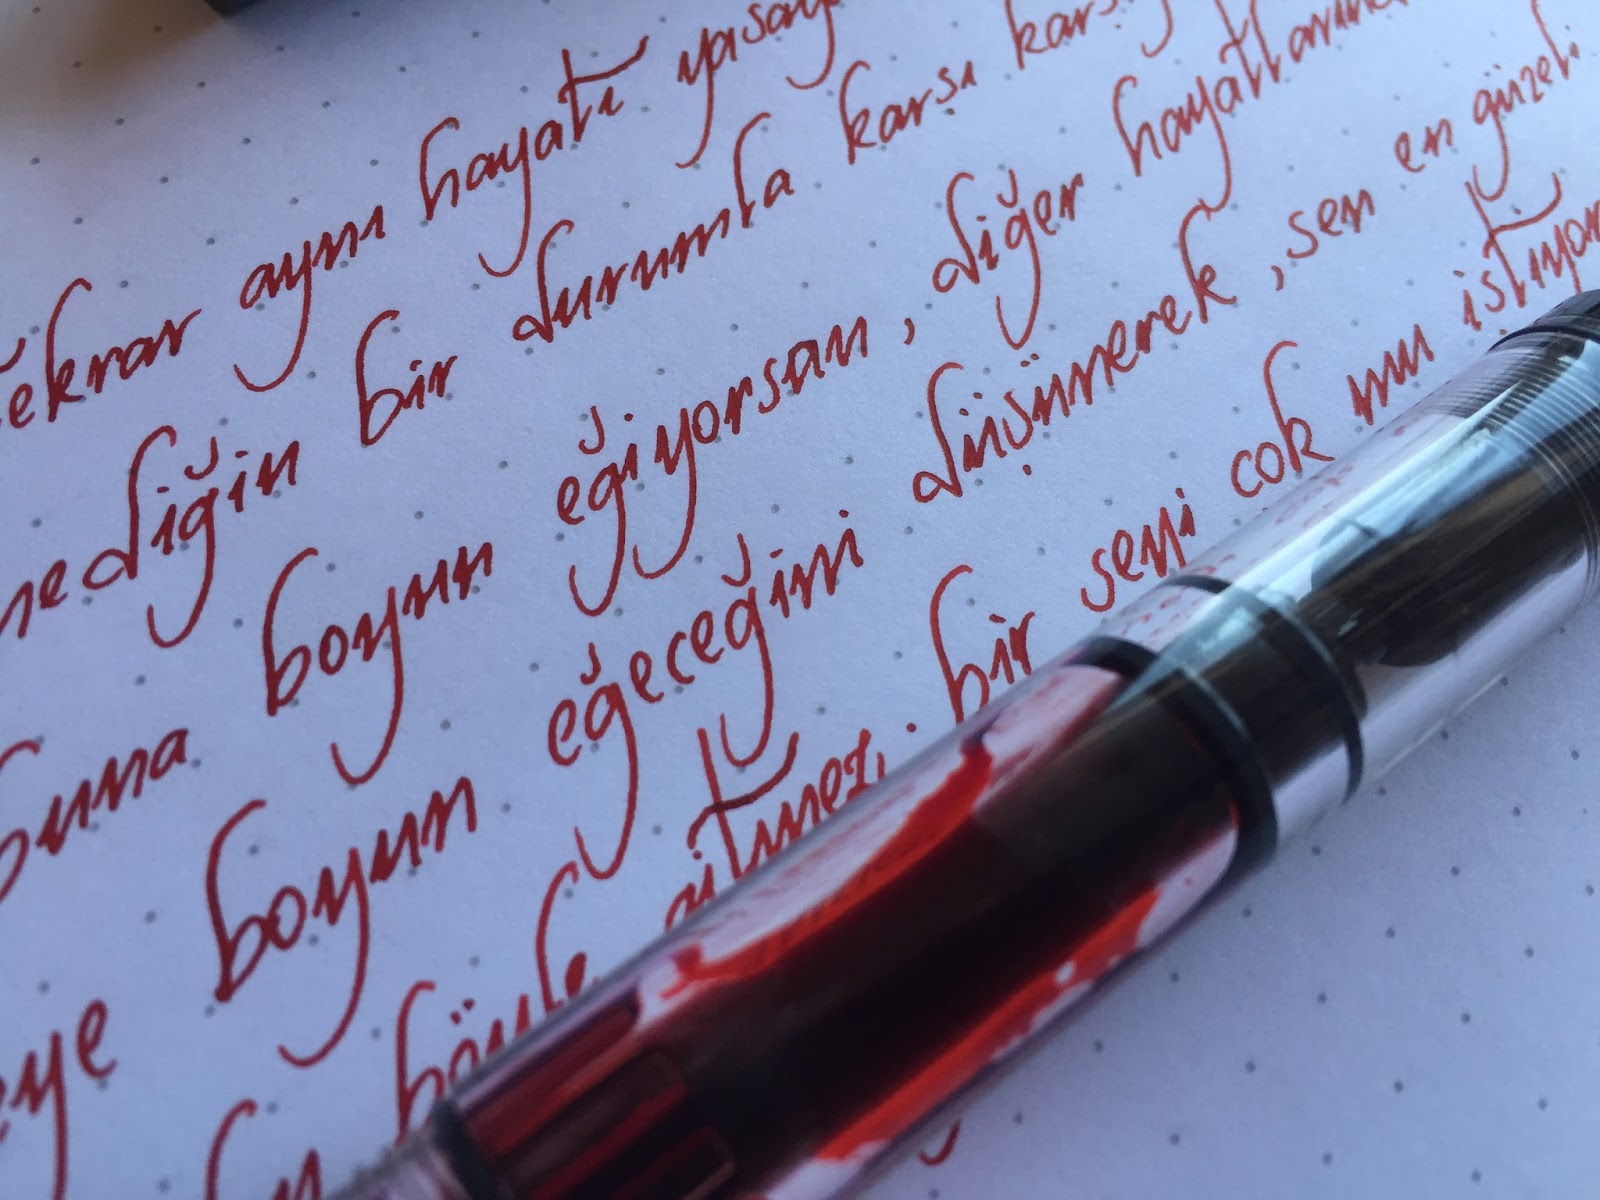 tekrar aynı hayatı yasay
nediğin bir durumla karsı kars
buna boyun eğiyorsan, diğer hayatların
eye boyun eğeceğini düşünerek, sen en güzeli
böyle gitmez. bir seyi cok mu istiyor